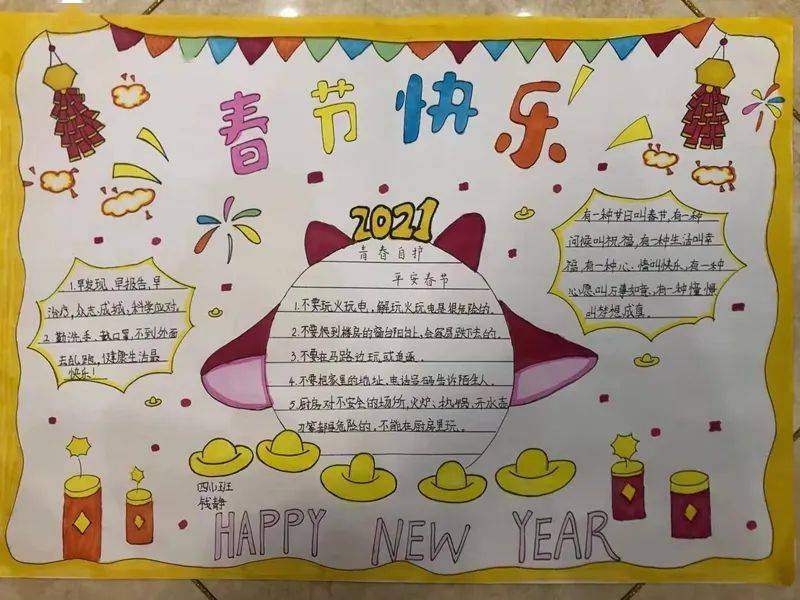 春节快乐
2021
青春自护
平安春节
1.不要玩火玩电，解玩火玩电是很危险的。
2.不要爬到楼房的窗台阳台上，会容易跌下去的。
3.不要在马路边玩或追逐。
4.不要把家里的地址、电话号码告诉陌生人。
5.厨房对不安全的场所，火炉、热锅、开水壶
刀等都是危险的，不能在厨房里玩。
1.早发现、早报告，早
治疗，众志成城，科学应对。
2.勤洗手、戴口罩，不到外面
去乱跑，健康生活最
快乐！
有一种节日叫春节，有一种
问候叫祝福，有一种生活叫幸
福，有一种心情叫快乐，有一种
心愿叫万事如意，有一种憧憬
叫梦想成真。
四小班
钱静
HAPPY NEW YEAR